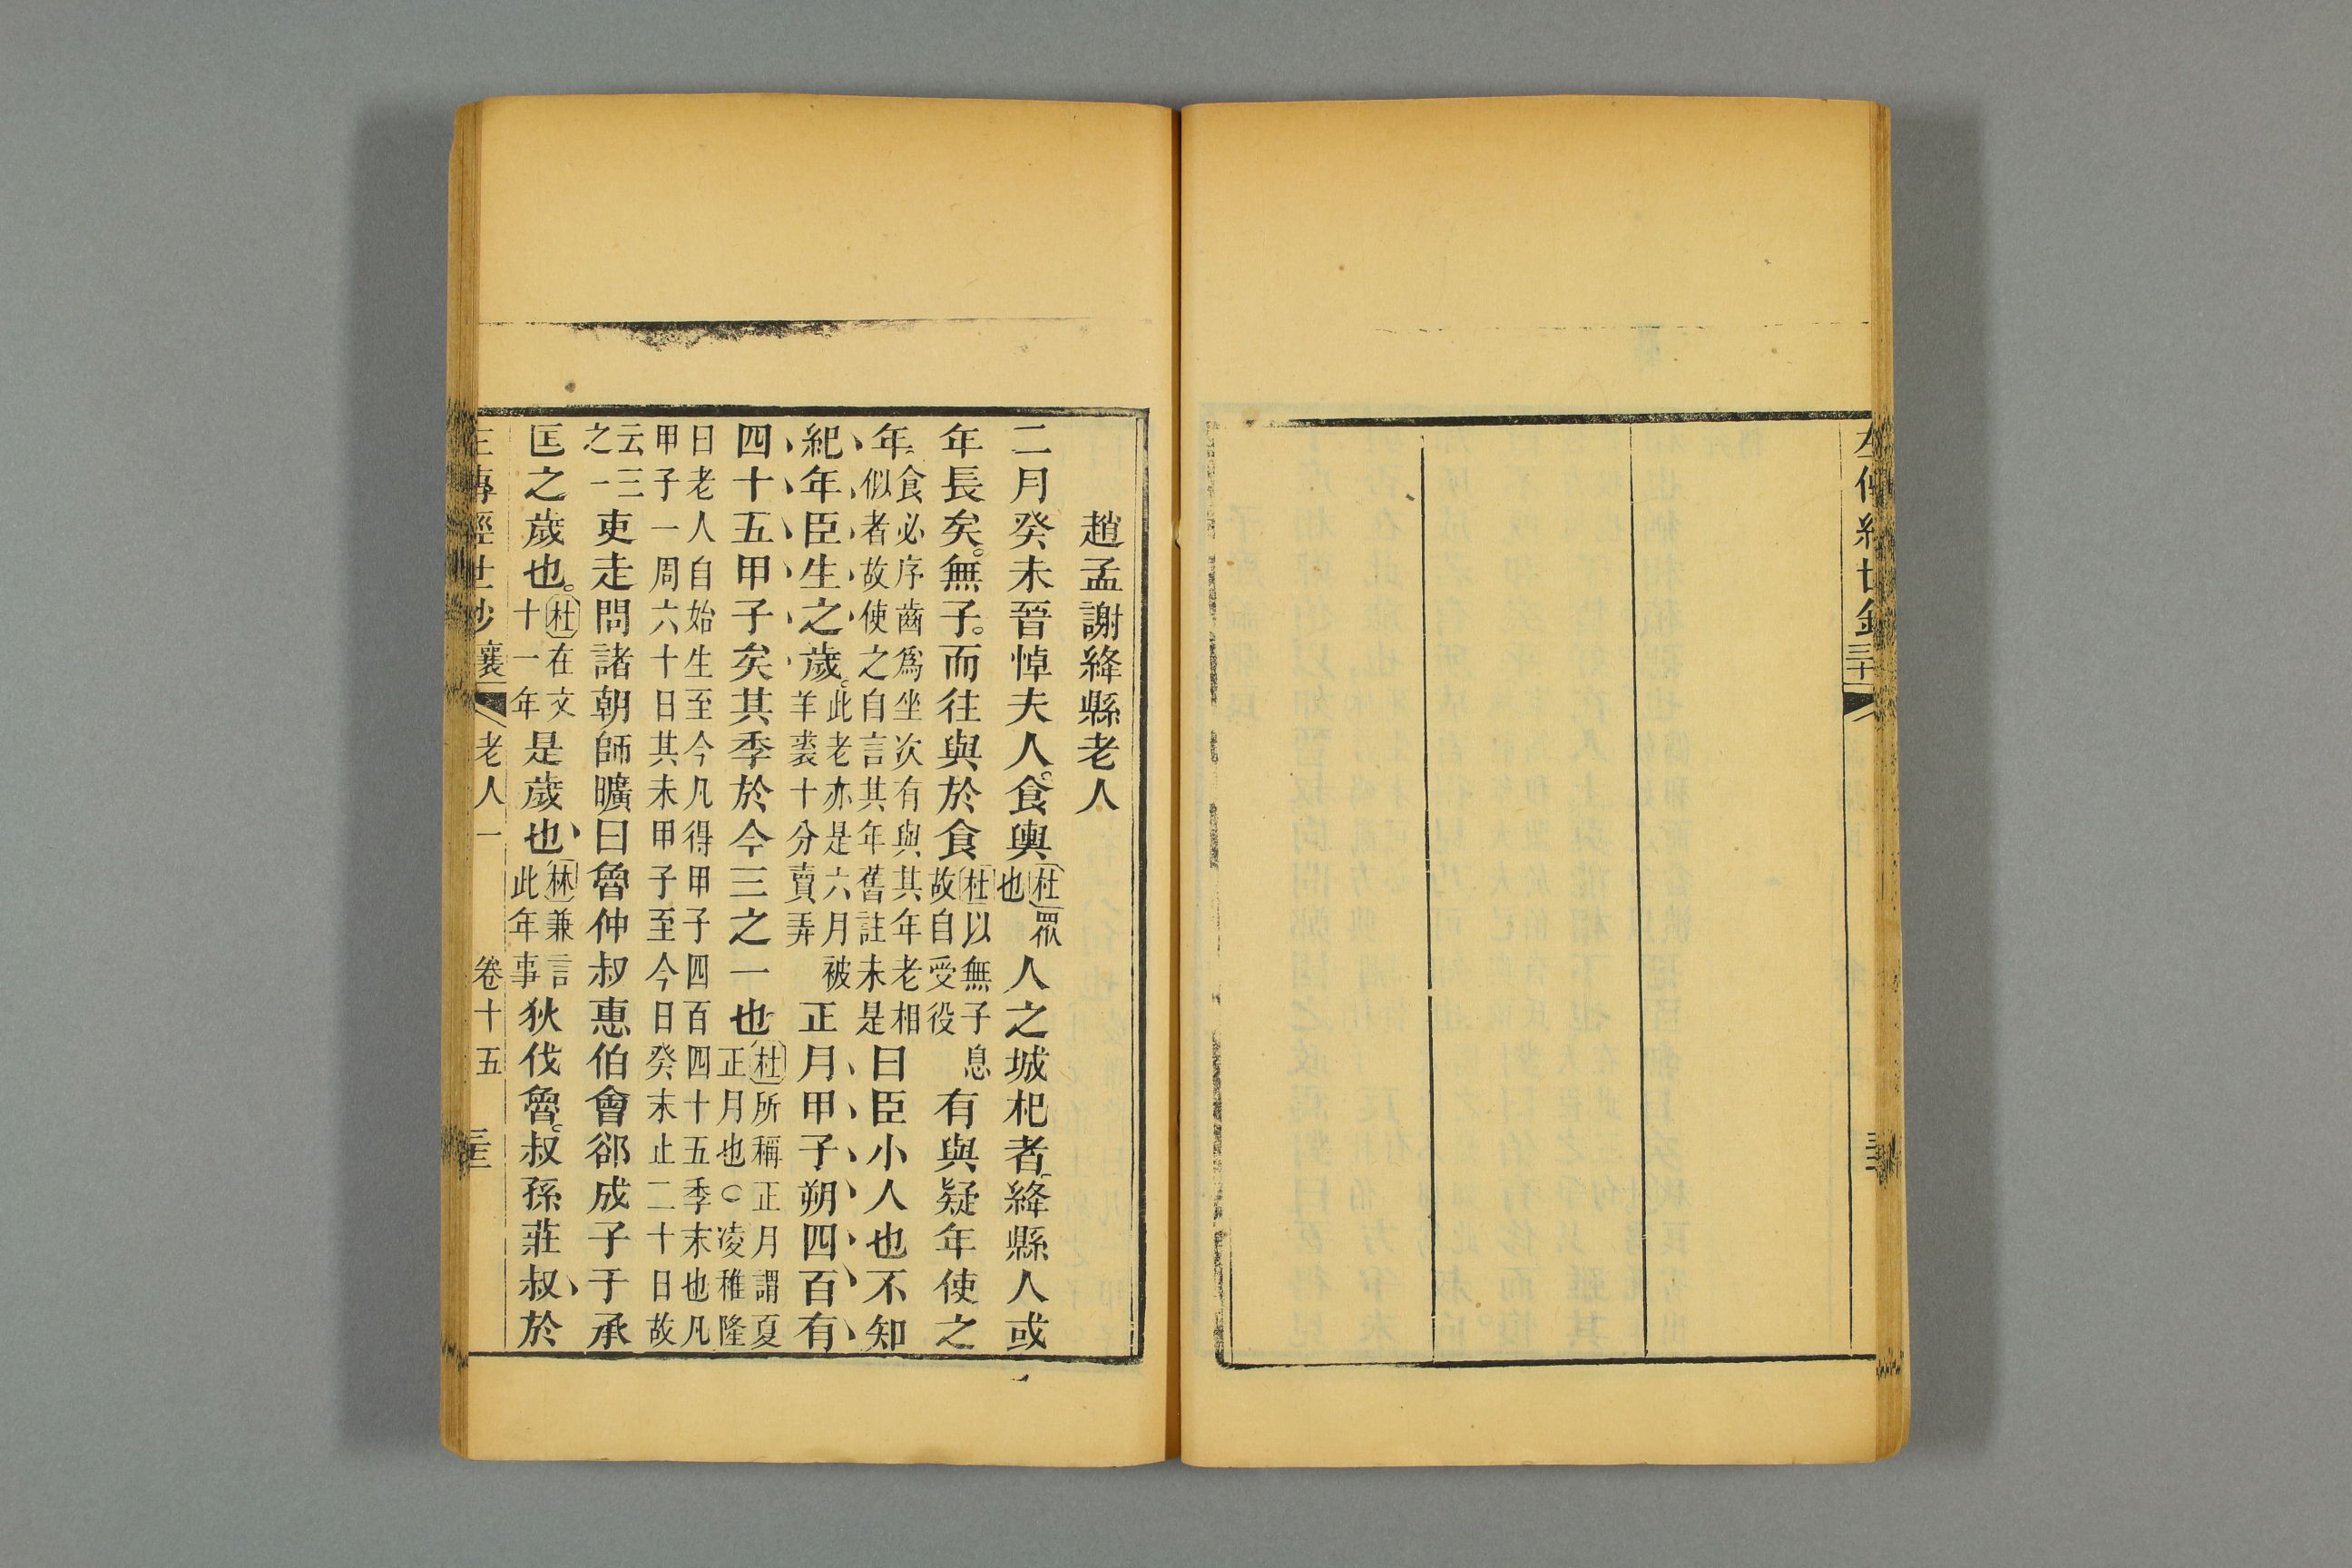 左傳經世鈔 三十
趙孟謝絳縣老人
二月癸未晉悼夫人。食輿杜眾也人之城杞者。絳縣人或
年長矣。無子。而往與於食杜以無子息故自受役有與疑年使之
年。食必序齒爲坐次有與其年老相似者故使之自言其年舊註未是曰臣小人也不知
紀年臣生之歲。此老亦是六月被羊裘十分賣弄正月甲子朔四百有
四十五甲子矣其季於今三之一也杜所稱正月謂夏正月也○凌稚隆
曰老人自始生至今凡得甲子四百四十五季末也凡甲子一周六十日其末甲子至今日癸未止二十日故
云三之一吏走問諸朝師曠曰魯仲叔惠伯會郤成子于承
匡之歲也。杜在文十一年是歲也林兼言此年事狄伐魯。叔孫莊叔於
左傳經世鈔 襄 老人一 卷十五